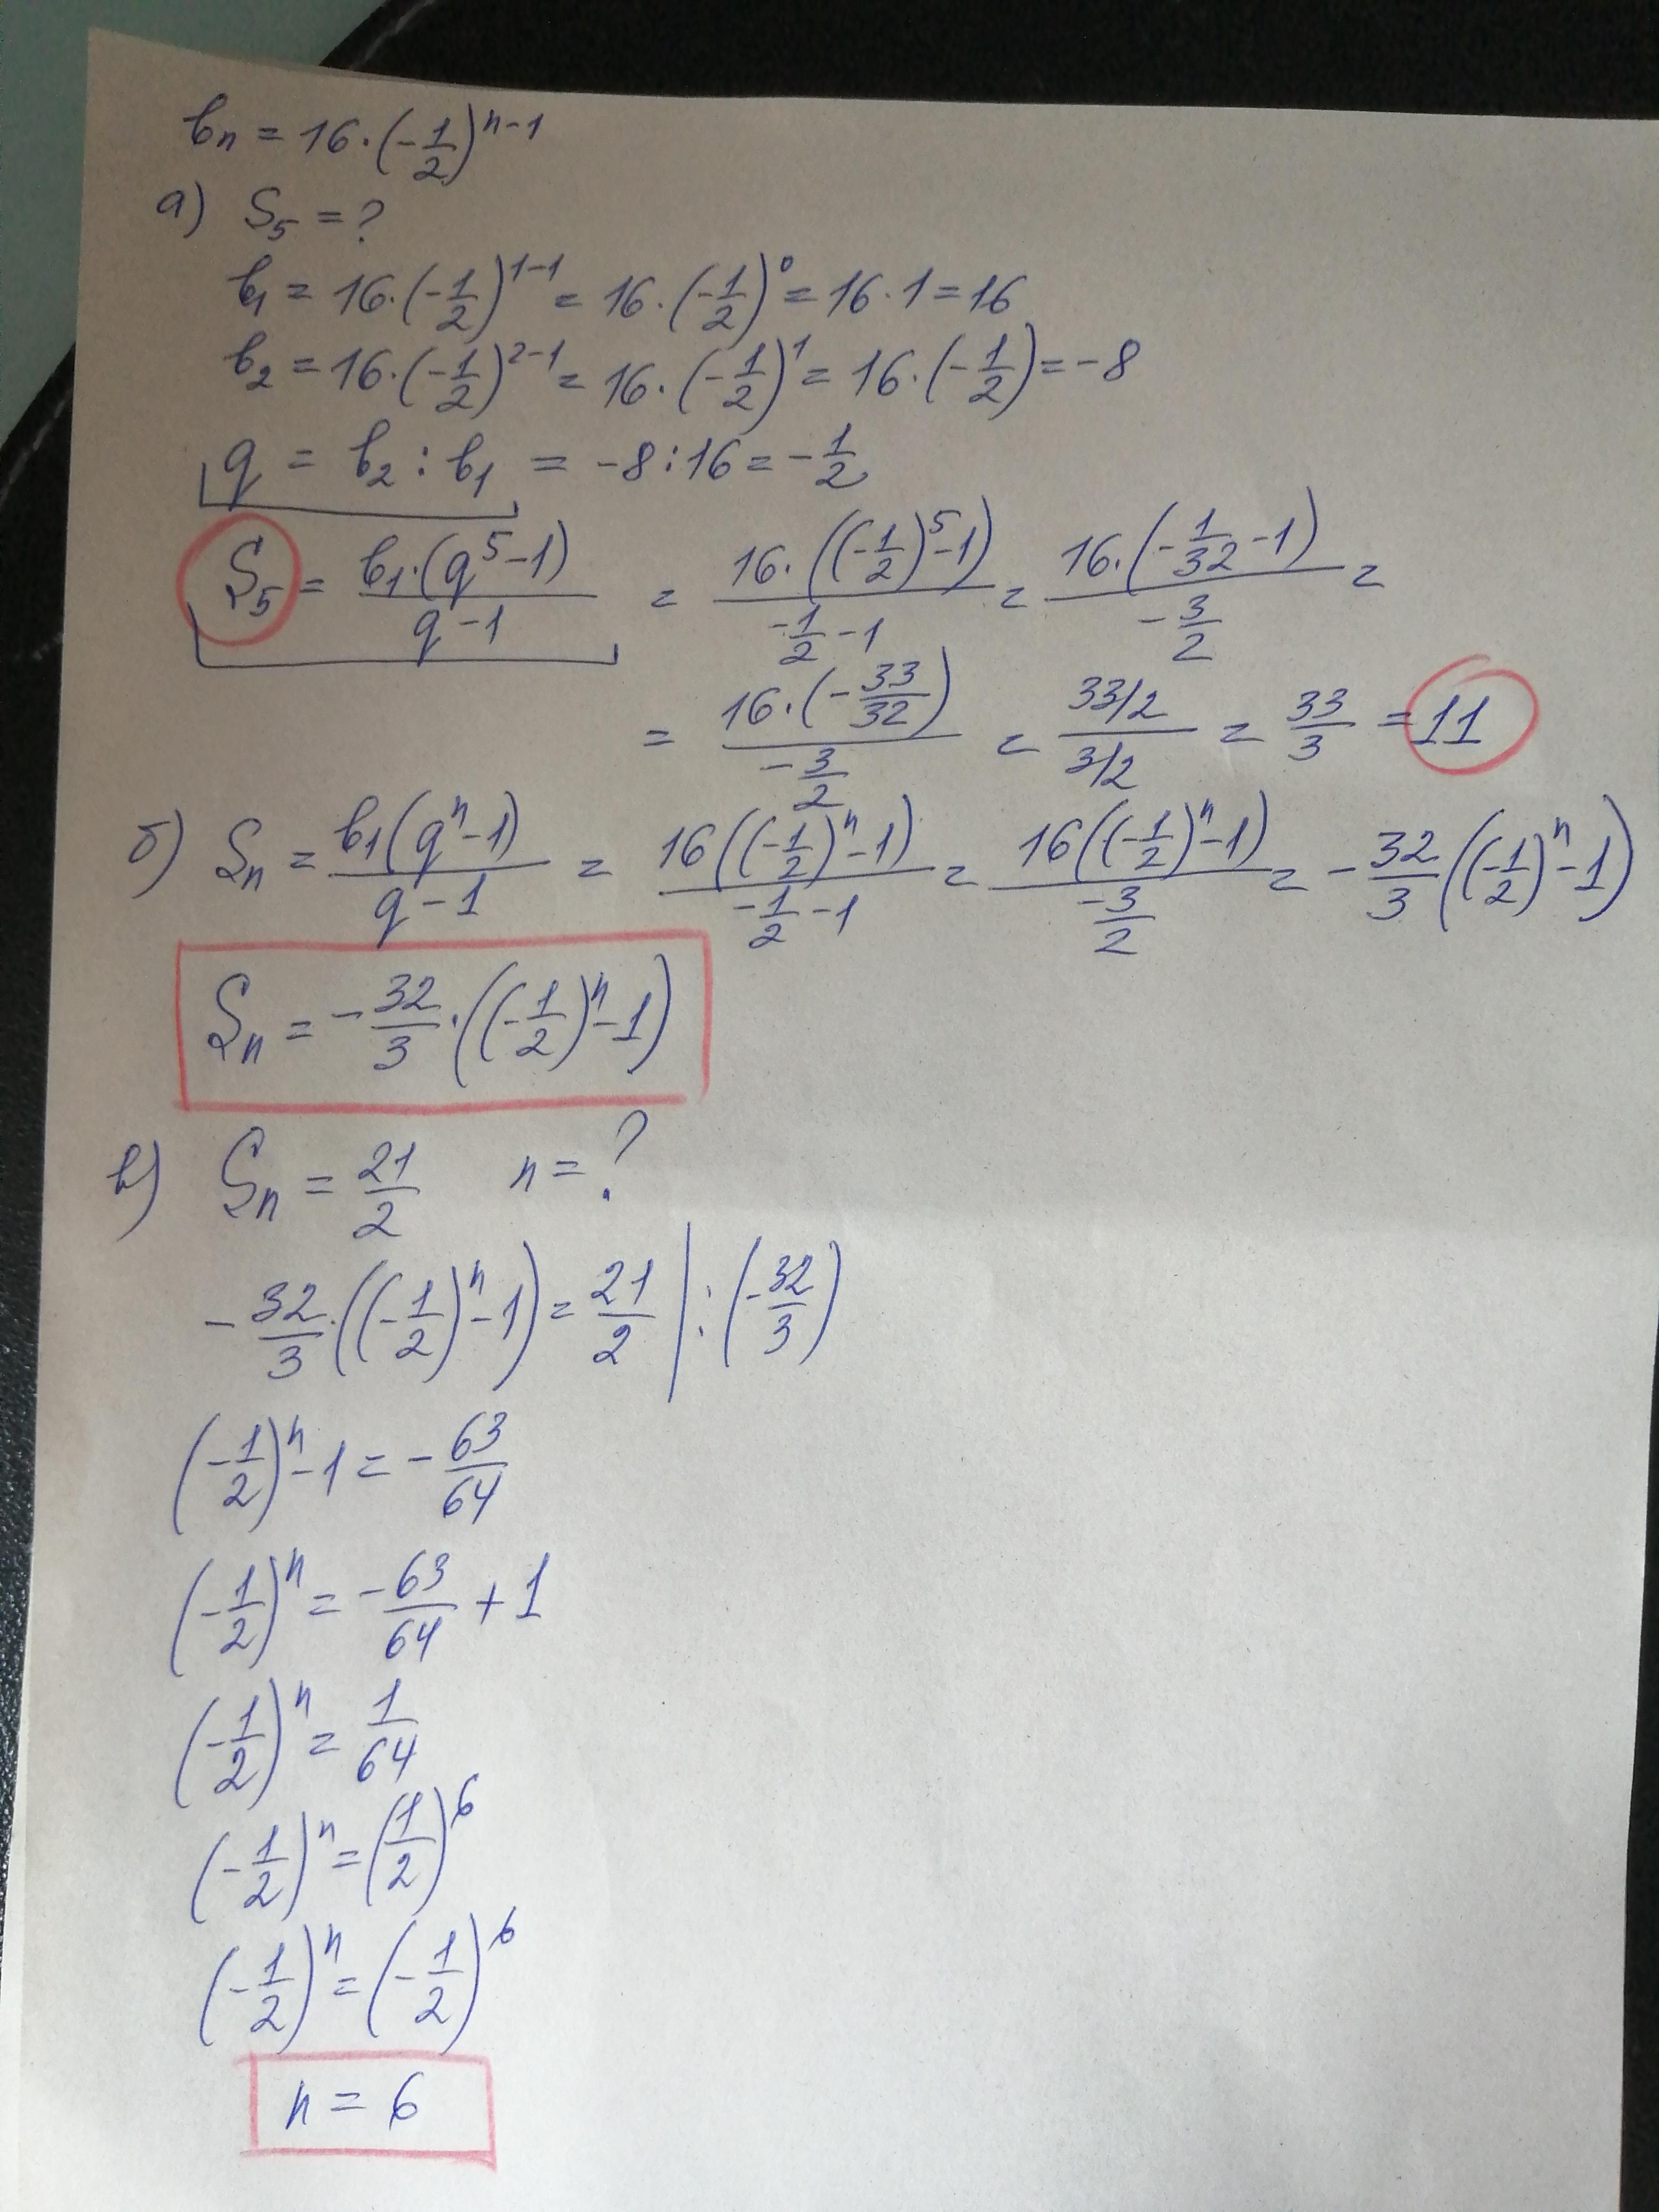 bn = 16·(-1/2)^(n-1)
а) S₅ = ?
b₁ = 16·(-1/2)^(1-1) = 16·(-1/2)^0 = 16·1 = 16
b₂ = 16·(-1/2)^(2-1) = 16·(-1/2)^1 = 16·(-1/2) = -8
q = b₂ : b₁ = -8:16 = -1/2
S₅ = b₁·(q^5-1)/(q-1) = 16·((-1/2)^5-1)/(-1/2-1) = 16·(-1/32-1)/(-3/2) =
= 16·(-33/32)/(-3/2) = (33/2)/(3/2) = 33/3 = 11
б) Sn = b₁(q^n-1)/(q-1) = 16((-1/2)^n-1)/(-1/2-1) = 16((-1/2)^n-1)/(-3/2) = -32/3((-1/2)^n-1)
Sn = -32/3·((-1/2)^n-1)
в) Sn = 21/2 n = ?
-32/3·((-1/2)^n-1) = 21/2 | : (-32/3)
(-1/2)^n-1 = -63/64
(-1/2)^n = -63/64 + 1
(-1/2)^n = 1/64
(-1/2)^n = (1/2)^6
(-1/2)^n = (-1/2)^6
n = 6